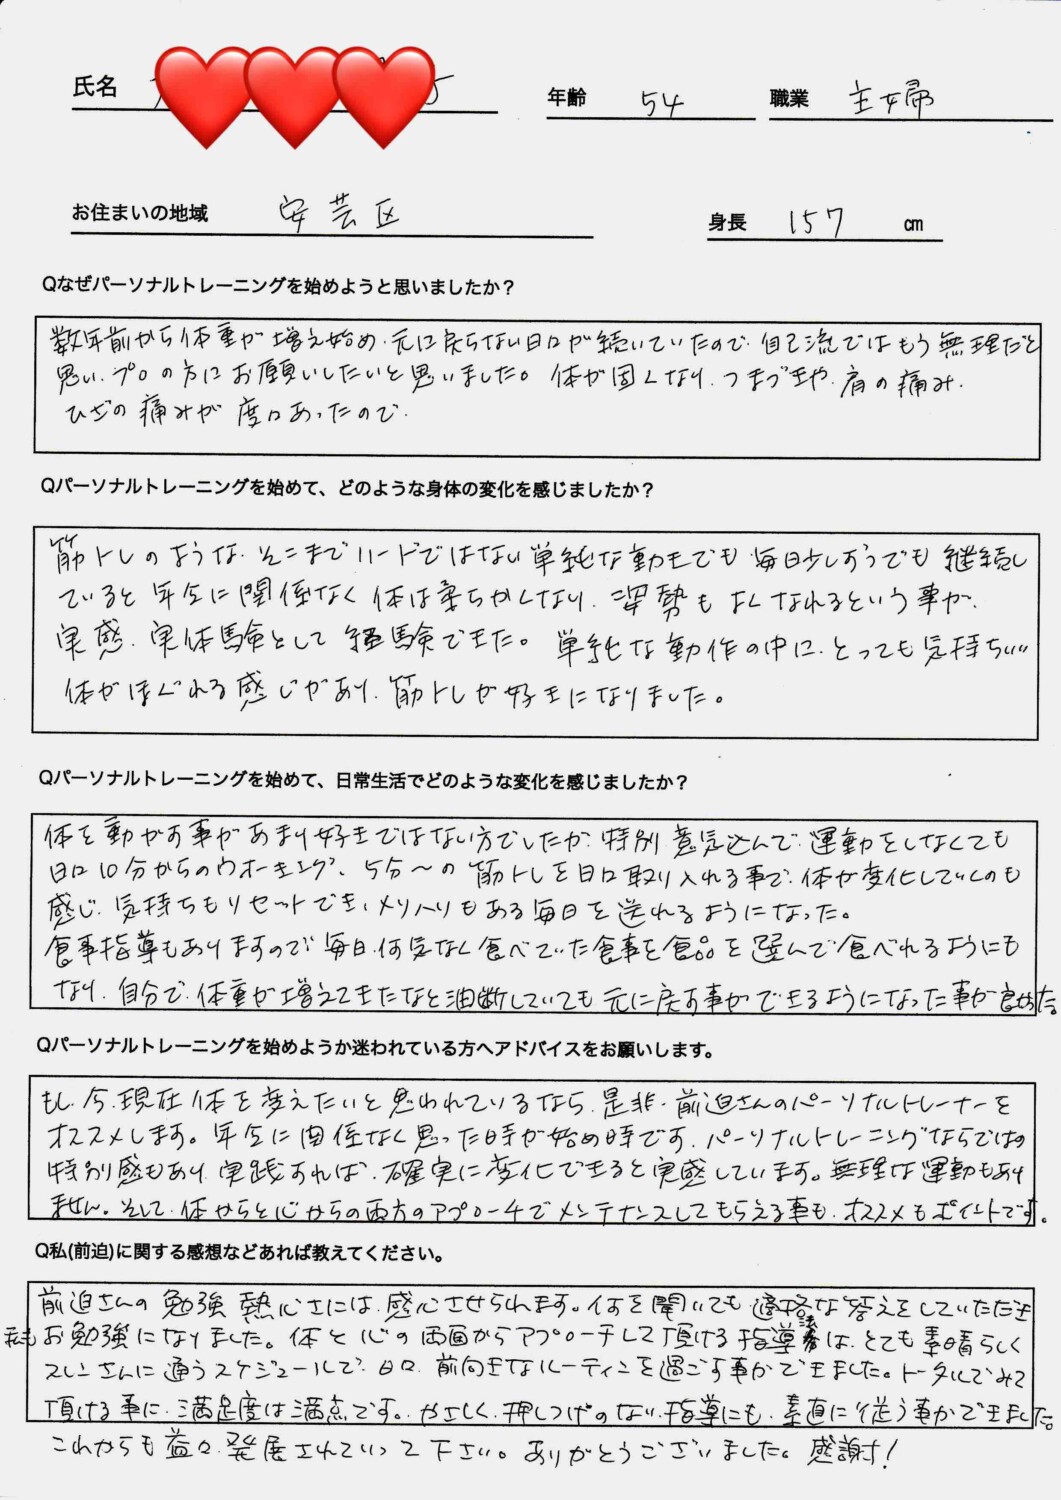 氏名
年齢 54 職業 主婦
お住まいの地域 安芸区
身長 157 cm
Qなぜパーソナルトレーニングを始めようと思いましたか？
数年前から体重が増え始め、元に戻らない日々が続いていたので、自己流ではもう無理だと
思い、プロの方にお願いしたいと思いました。体が固くなり、つまづきや、肩の痛み、
ひざの痛みが度々あったので、
Qパーソナルトレーニングを始めて、どのような身体の変化を感じましたか？
筋トレのような、そこまでハードではない単純な動きでも毎日少しずつでも継続し
ていると年令に関係なく体は柔らかくなり、姿勢もよくなれるという事が、
実感、実体験として経験できた。単純な動作の中に、とっても気持ちいい
体がほぐれる感じがあり、筋トレが好きになりました。
Qパーソナルトレーニングを始めて、日常生活でどのような変化を感じましたか？
体を動かす事があまり好きではない方でしたが、特別意気込んで、運動をしなくても
日々10分からのウオーキング、5分〜の筋トレを日々取り入れる事で、体が変化していくのも
感じ、気持ちもリセットでき、メリハリもある毎日を送れるようになった。
食事指導もありますので毎日何気なく食べていた食事を食品を選んで食べれるようにも
なり、自分で、体重が増えてきたなと油断していても元に戻す事ができるようになった事が良かった。
Qパーソナルトレーニングを始めようか迷われている方へアドバイスをお願いします。
もし、今、現在体を変えたいと思われているなら、是非、前迫さんのパーソナルトレーナーを
オススメします。年令に関係なく思った時が始め時です。パーソナルトレーニングならではの
特別感もあり、実践すれば、確実に変化できると実感しています。無理な運動もあり
ません。そして、体からと心からの両方のアプローチでメンテナンスしてもらえる事も、オススメもポイントです。
Q私(前迫)に関する感想などあれば教えてください。
前迫さんの勉強熱心さには、感心させられます。何を聞いても適格な答えをしていただき
私もお勉強になりました。体と心の両面からアプローチして頂ける指導法は、とても素晴らしく
スレンさんに通うスケジュールで、日々、前向きなルーティンを過ごす事ができました。トータルでみて
頂ける事に、満足度は満点です。やさしく、押しつけのない指導にも、素直に従う事ができました。
これからも益々発展されていって下さい。ありがとうございました。感謝！